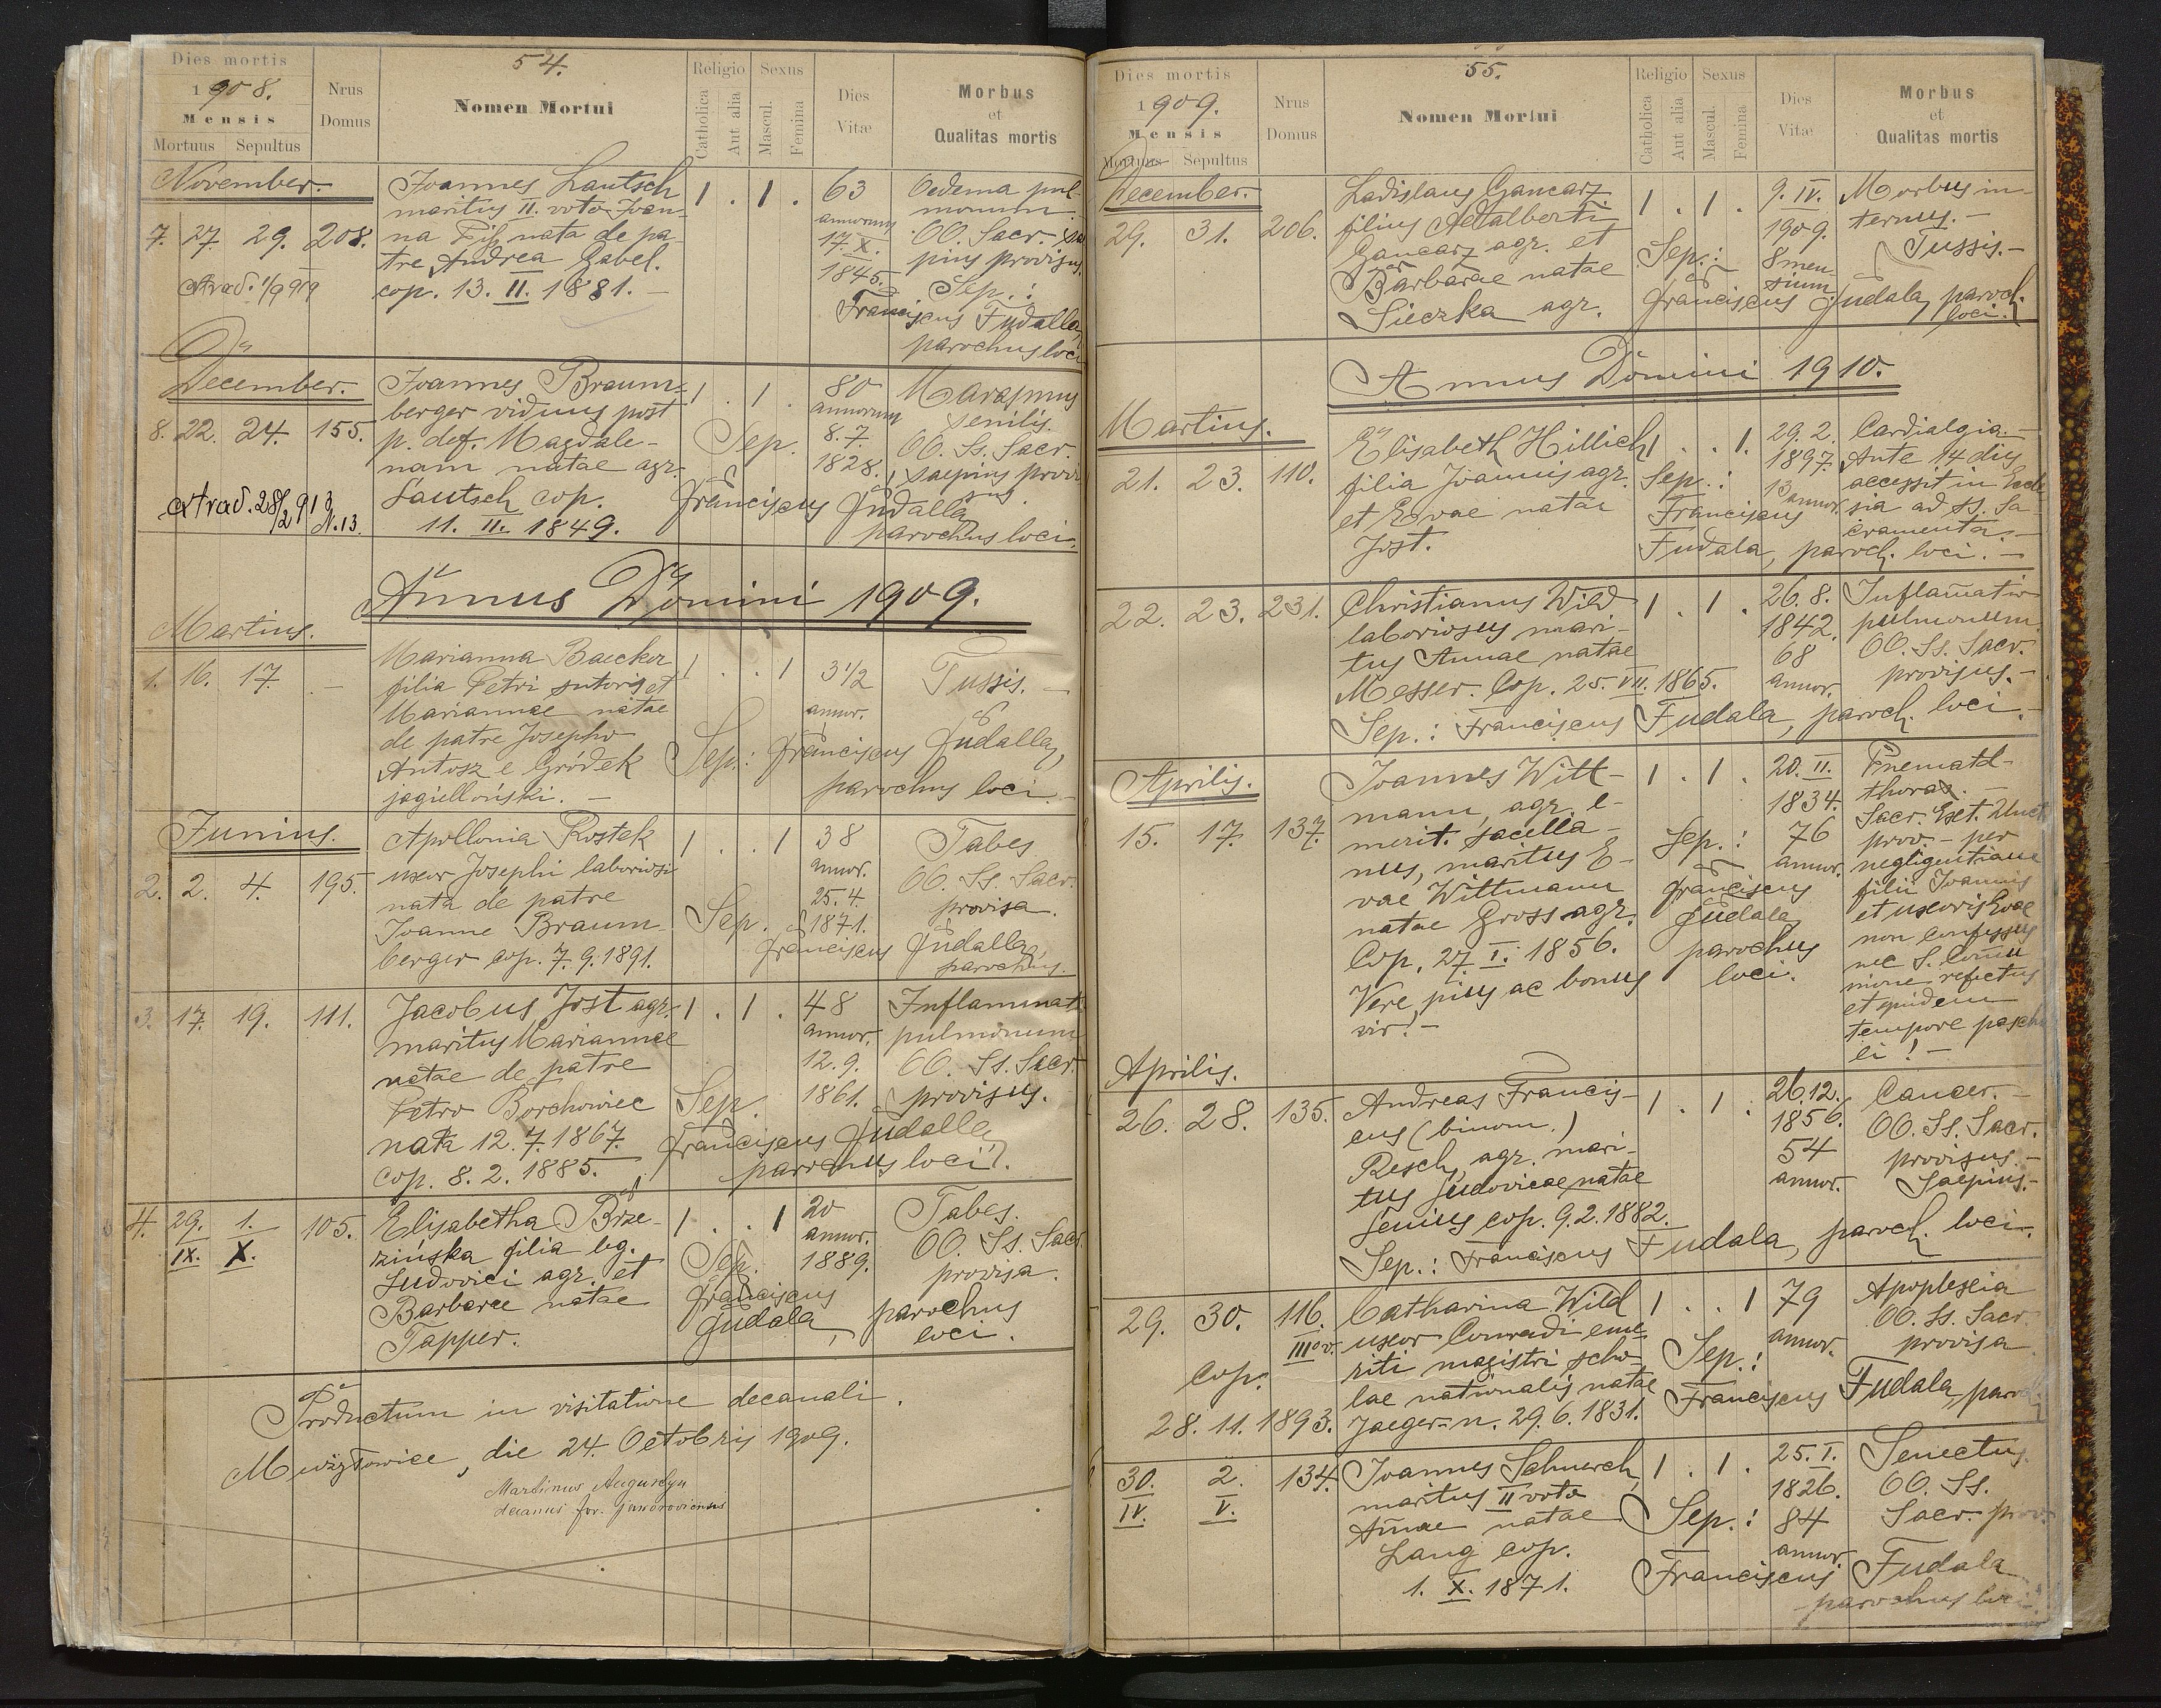 54.
Dies mortis
1908.
Mensis
Mortuus Sepultus
Nrus
Domus
Nomen Mortui
Religio
Catholica
Aut alia
Sexus
Mascul.
Femina
Dies
Vitæ
Morbus
et
Qualitas mortis
November.
7. 27. 29. 208.
Joannes Lautsch
maritus II. voto Joan-
na Fiß nata de pa-
tre Andrea Gabel.
cop. 13. II. 1881. -
1 . 1 .
63
annorum
17. X.
1845.
Oedema pul-
monum.
OO. Sacr.
pius provisus.
Sep.:
Franciscus Fudalla,
parochus loci
December.
8. 22. 24. 155.
Joannes Braum-
berger viduus post
p. def. Magdale-
nam natae agr.
Lautsch cop.
11. II. 1849.
1 . 1 .
80
annorum
8. 7.
1828.
Marasmus
senilis.
OO. Ss. Sacr.
saepius provi
sus.
Sep.
Franciscus Fudalla
parochus loci.
extrad. 28/2 913
N. 13.
Annus Domini 1909.
Martius.
1. 16. 17. -
Marianna Baecker
filia Petri sutoris et
Mariannae natae
de patre Josepho
Antosz e Gródek
jagielloński. -
1 . . 1
3 1/2
annor.
Tussis. -
Sep.: Franciscus Fudalla,
parochus loci. -
Junius.
2. 2. 4. 195.
Apollonia Rostek
uxor Josephi laboriosi
nata de patre
Joanne Braum-
berger cop. 7. 9. 1891.
1 . . 1
38
annor.
25. 4.
1871.
Tabes
OO. Ss. Sacr.
provisa.
Sep.
Franciscus Fudalla,
parochus.
3. 17. 19. 111.
Jacobus Jost agr.
maritus Mariannae
natae de patre
Petro Borchowiec
nata 12. 7. 1867.
cop. 8. 2. 1885.
1 . 1 .
48
annor.
12. 9.
1861.
Inflammat.
pulmonum
OO. Ss. Sacr.
provisus.
Sep.
Franciscus Fudalla
parochus loci.
4. 29. 1. 105.
IX. X.
Elisabetha Brze-
zińska filia leg.
Ludovici agr. et
Barbarae natae
Tapper.
1 . . 1
20
annor.
1889.
Tabes.
OO. Ss. Sacr.
provisa.
Sep.
Franciscus
Fudala, parochus
loci.
Productum in visitatione decanali.
die 24. Octobris 1909.
Martinus
decanus for. jaworoviensis
55.
Dies mortis
1909.
Mensis
Mortuus Sepultus
Nrus
Domus
Nomen Mortui
Religio
Catholica
Aut alia
Sexus
Mascul.
Femina
Dies
Vitæ
Morbus
et
Qualitas mortis
December.
29. 31. 206.
Ladislaus Gancarz
filius Adalberti
Gancarz agr. et
Barbarae natae
Sieczka agr.
1 . 1 .
9. IV.
1909.
8 men-
sium.
Morbus in-
ternus. -
Tussis. -
Sep.:
Franciscus Fudala, paroch.
loci.
Annus Domini 1910.
Martius.
21. 23. 110.
Elisabeth Hillich
filia Joannis agr.
et Evae natae
Jost.
1 . . 1.
29. 2.
1897.
13 annor.
Cardialgia. -
Ante 14 dies
accessit in Eccle
sia ad SS. Sa-
cramenta. -
Sep.:
Franciscus
Fudala, paroch. loci. -
22. 23. 231.
Christianus Wild
laboriosus mari-
tus Annae natae
Messer. Cop. 25. VII. 1865.
1 . 1 .
26. 8.
1842.
68
annor.
Inflam̃atio
pulmonum
OO. Ss. Sacr.
provisus. -
Sep.: Franciscus Fudala, paroch. loci. -
Aprilis.
15. 17. 137.
Joannes Witt-
mann, agr. e-
merit. sacella-
nus, maritus E-
vae Wittmann
natae Gross agr.
Cop. 27. I. 1856.
Vere pius ac bonus
vir! -
1 . 1 .
20. II.
1834.
76
annor.
Sep.:
Franciscus
Fudala
parochus
loci.
thorax. -
Sacr. Ext. Unct
prov. - per
negligentiam
filii Joannis
et uxoris Evae
non confessus
nec S. Com̃u
nione refectus
et quidem
tempore pascha
li! -
Aprilis.
26. 28. 135.
Andreas Francis-
cus (binom.)
Resch, agr. mari-
tus Ludovicae natae
Jenius cop. 9. 2. 1882.
1 . 1 .
26. 12.
1856.
54
annor.
Cancer. -
OO. Ss. Sacr.
provisus. -
Saepius. -
Sep.: Franciscus Fudala, paroch. loci.
29. 30. 116.
III ov.
Cop.
28. 11. 1893.
Catharina Wild
uxor Conradi eme-
riti magistri scho-
lae nationalis natae
Jaeger - n. 29. 6. 1831.
1 . . 1
79
annor.
Apoplexia
OO. Ss. Sacr.
provisa
Sep.:
Franciscus Fudala, paroch.
30. 2. 134.
IV. V.
Joannes Schnerch,
maritus II voto
Añnae natae
Lang cop.
1. X. 1871.
1 . 1 .
25. I.
1826.
84
annor.
Senectus.
OO. Ss.
Sacr. prov.
Sep.:
Franciscus Fudala
parochus loci.